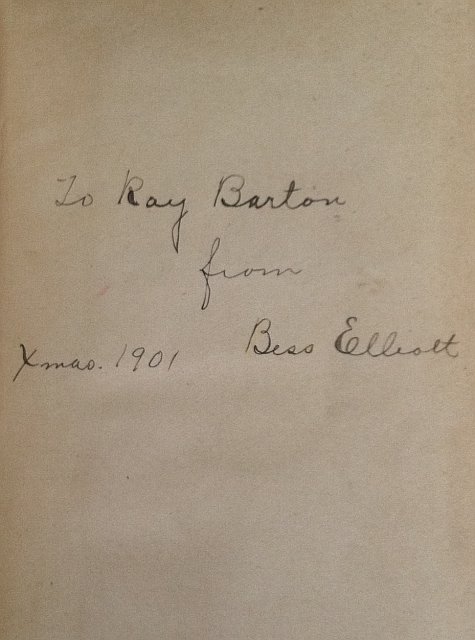 To Ray Barton
from
Bess Elliott
Xmas. 1901